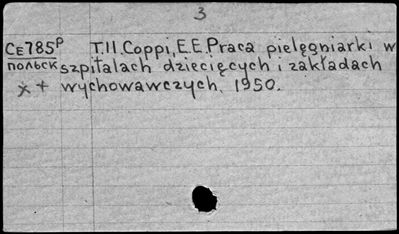 3
CE785P T.II.Coppi, E.E. Praca pielęgniarki w
польск szpitalach dziecięcych i zakładach
x + wychowawczych, 1950.